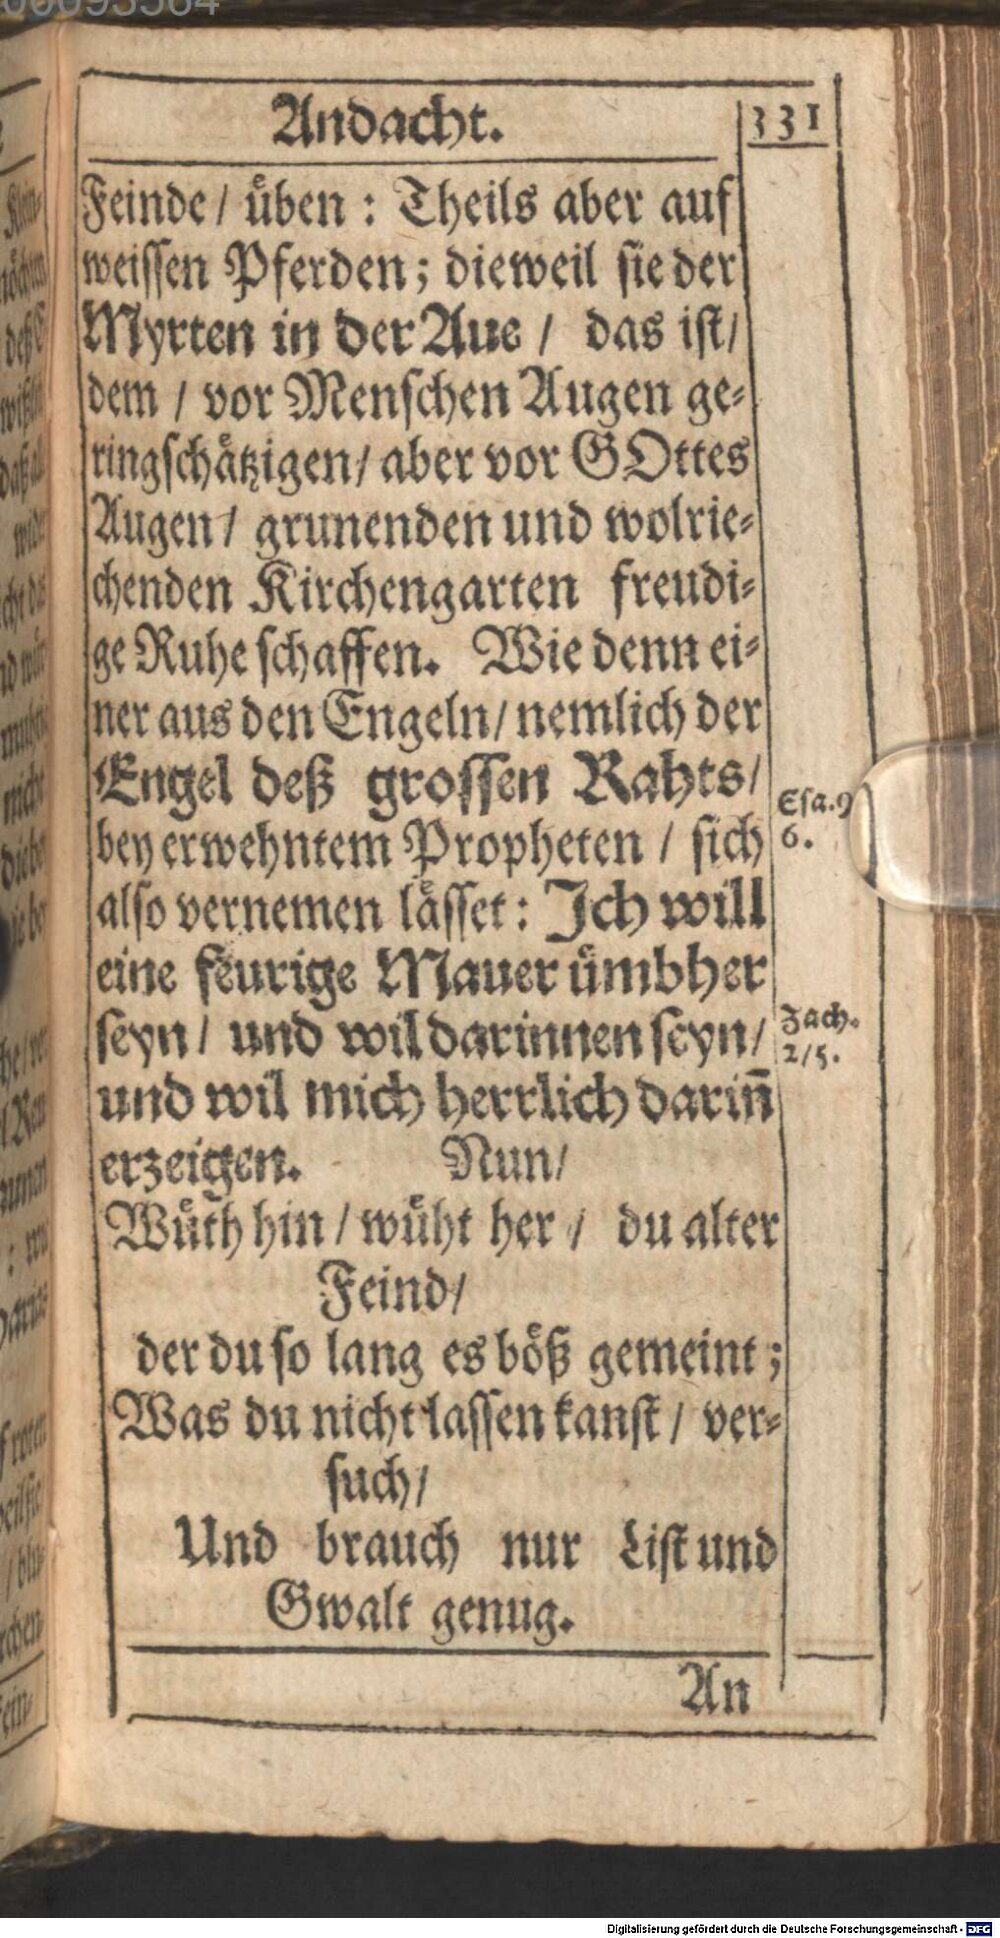 Andacht. 331
Feinde / üben : Theils aber auf
weissen Pferden; dieweil sie der
Myrten in der Aue / das ist/
dem / vor Menschen Augen ge-
ringschätzigen/ aber vor GOttes
Augen / grunenden und wolrie-
chenden Kirchengarten freudi-
ge Ruhe schaffen. Wie denn ei-
ner aus den Engeln/ nemlich der
Engel deß grossen Rahts/
bey erwehntem Propheten / sich
also vernemen lässet: Ich will
eine feurige Mauer ümbher
seyn / und wil darinnen seyn/
und wil mich herrlich darin̄
erzeigen. Nun/
Wüth hin / wüht her / du alter
Feind/
der du so lang es böß gemeint;
Was du nicht lassen kanst / ver-
such/
Und brauch nur List und
Gwalt genug.
An
Esa. 9
6.
Zach.
2/5.
Digitalisierung gefördert durch die Deutsche Forschungsgemeinschaft - DFG